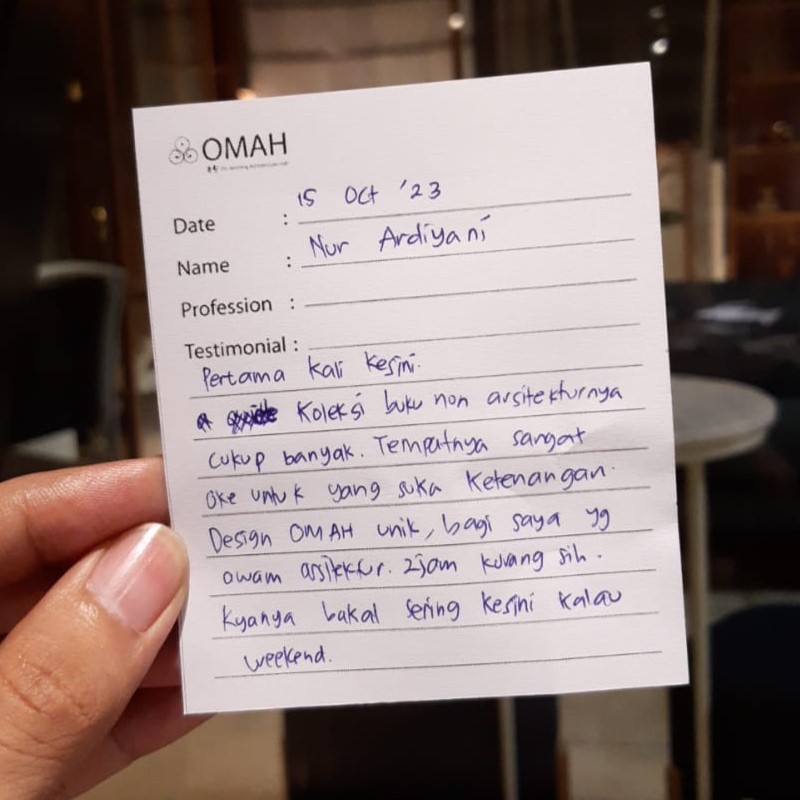 OMAH
Date : 15 Oct '23
Name : Nur Ardiyani
Profession :
Testimonial :
Pertama kali kesini.
Koleksi buku non arsitekturnya
cukup banyak. Tempatnya sangat
oke untuk yang suka ketenangan.
Design OMAH unik, bagi saya yg
awam arsitektur. 2jam kurang sih.
Kyanya bakal sering kesini kalau
weekend.